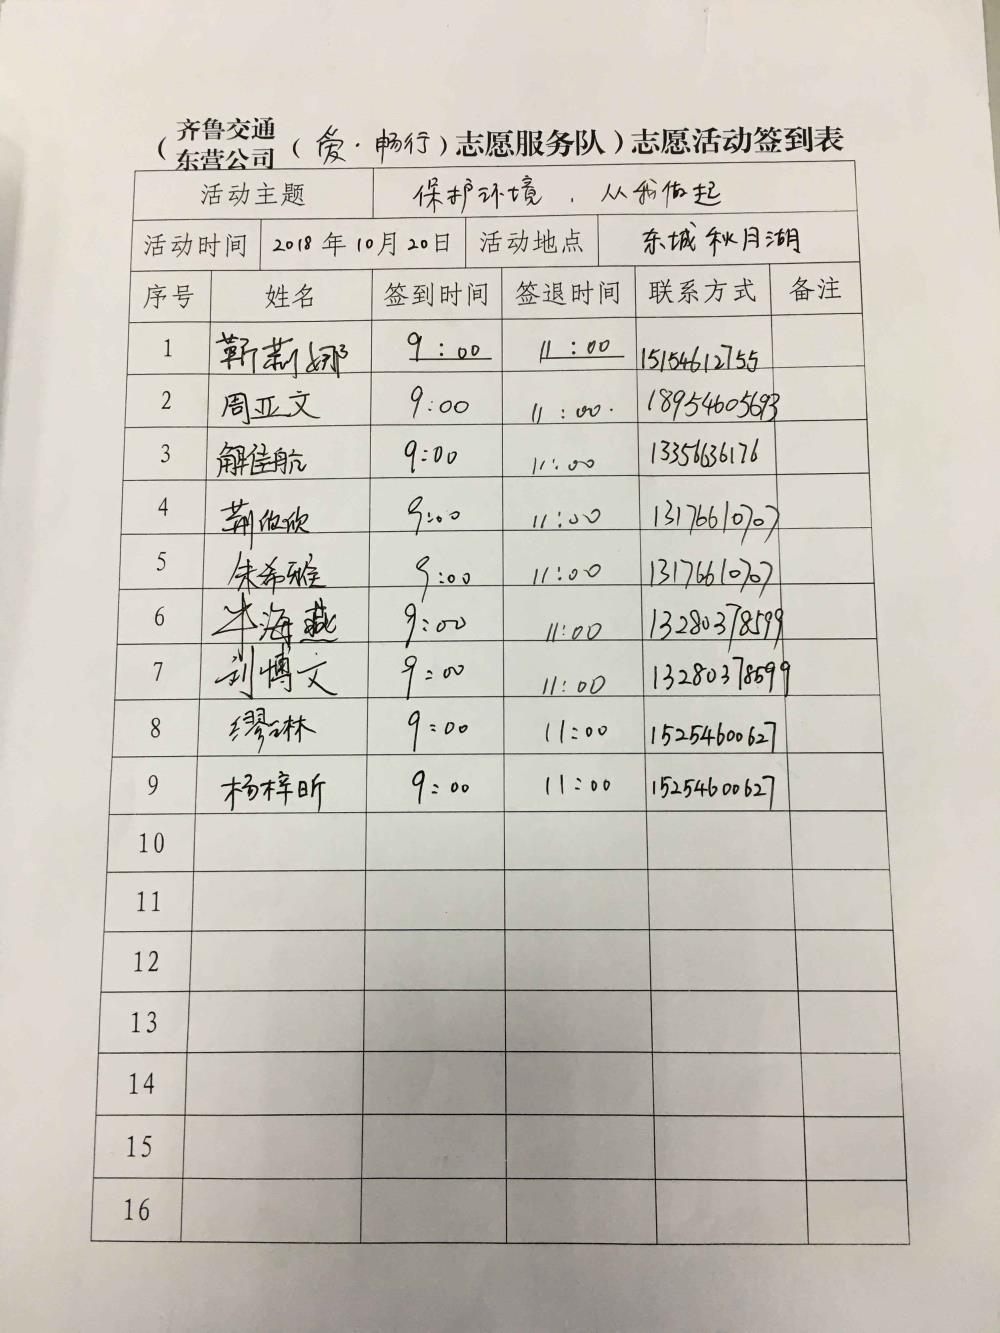 （齐鲁交通东营公司（爱·畅行）志愿服务队）志愿活动签到表
活动主题 保护环境，从我做起
活动时间 2018年10月20日 活动地点 东城秋月湖
序号 姓名 签到时间 签退时间 联系方式 备注
1 靳莉娜 9:00 11:00 15154612755
2 周亚文 9:00 11:00. 18954605693
3 解佳航 9:00 11:00 13356636176
4 9:00 11:00 13176610707
5 朱希雅 9:00 11:00 13176610707
6 牛海燕 9:00 11:00 13280378599
7 刘博文 9:00 11:00 13280378599
8 缪琳 9:00 11:00 15254600627
9 杨梓昕 9:00 11:00 15254600627
10
11
12
13
14
15
16